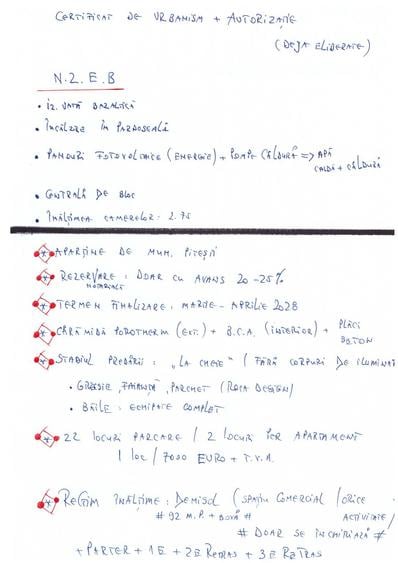 CERTIFICAT DE URBANISM + AUTORIZAȚIE
(DEJA ELIBERATE)
N.Z.E.B
• IZ. VATĂ BAZALTICĂ
• ÎNCĂLZIRE ÎN PARDOSEALĂ
• PANOURI FOTOVOLTAICE (ENERGIE) + POMPE CĂLDURĂ => APĂ
CALDĂ + CĂLDURĂ
• CENTRALĂ DE BLOC
• ÎNĂLȚIMEA CAMERELOR: 2.75
* APARȚINE DE MUN. PITEȘTI
* REZERVARE: DOAR CU AVANS 20-25%
NOTARIALĂ
* TERMEN FINALIZARE: MARTIE - APRILIE 2028
* CĂRĂMIDĂ POROTHERM (EXT.) + B.C.A. (INTERIOR) + PLĂCI
BETON
* STADIUL PREDĂRII: "LA CHEIE" / FĂRĂ CORPURI DE ILUMINAT
• GRESIE, FAIANȚĂ, PARCHET (ROCA DESIGN)
• BĂILE: ECHIPATE COMPLET
* 22 LOCURI PARCARE / 2 LOCURI PER APARTAMENT
1 LOC / 7000 EURO + T.V.A.
* REGIM ÎNĂLȚIME: DEMISOL (SPAȚIU COMERCIAL / ORICE
ACTIVITATE/
# 92 M.P. +
# DOAR SE ÎNCHIRIAZĂ #
+ PARTER + 1E + 2E RETRAS + 3E RETRAS